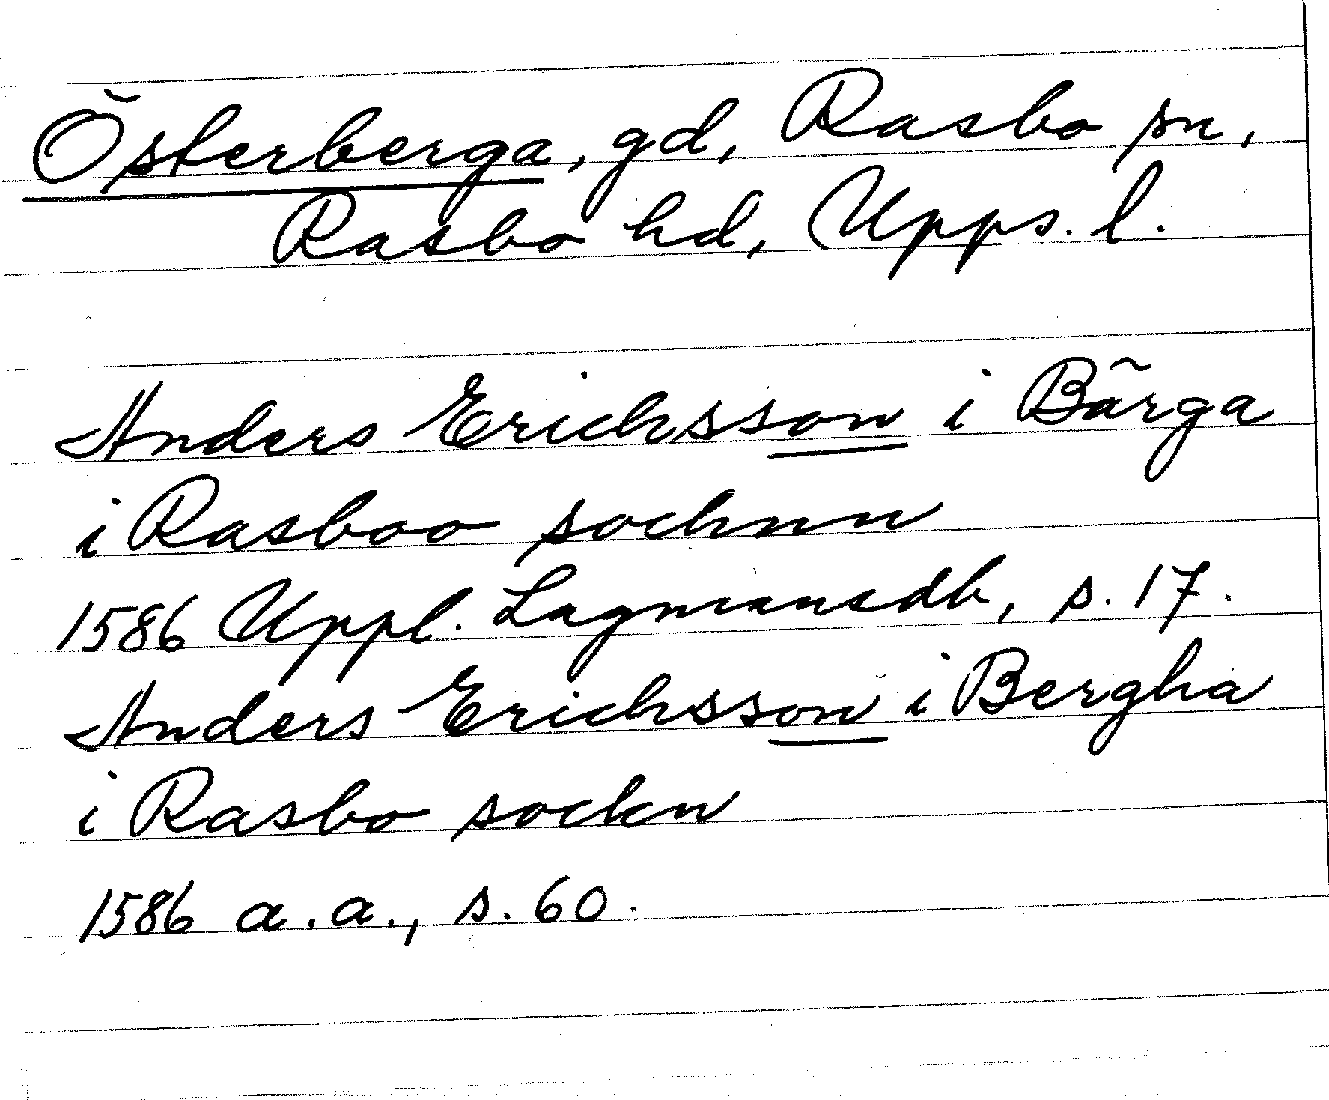 Österberga, gd, Rasbo sn,
Rasbo hd, Upps. l.
Anders Erichsson i Bärga
i Rasboo sochnn
1586 Uppl. Lagmansdb, s. 17.
Anders Erichsson i Bergha
i Rasbo sockn
1586 a.a., s. 60.